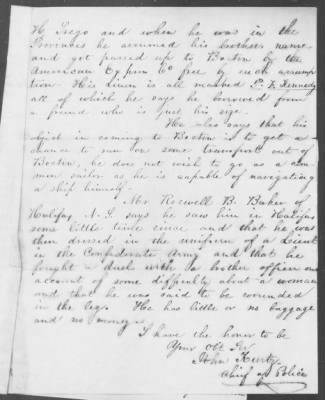 H Sego and when he was in the
Provinces he assumed his brothers name
and got passed up to Boston by the
American Expss Co free by such assump
tion. His Linen is all marked P. F. Kennedy
all of which he says he borrowed from
a friend who is just his size.
He also says that his
object in coming to Boston is to get a
chance to run on some transport out of
Boston, he does not wish to go as a com
mon sailor as he is capable of navigating
a ship himself.
Mr Roswell B. Baker of
Halifax N.S. says he saw him in Halifax
some little time since and that he was
then dressed in the uniform of a Lieut
in the Confederate Army and that he
fought a duel with a brother officer on
account of some difficulty about a woman
and that he was said to be wounded
in the leg. He has little or no baggage
and no money.
I have the honor to be
Your Obt Svt
John Kurtz
Chief of Police